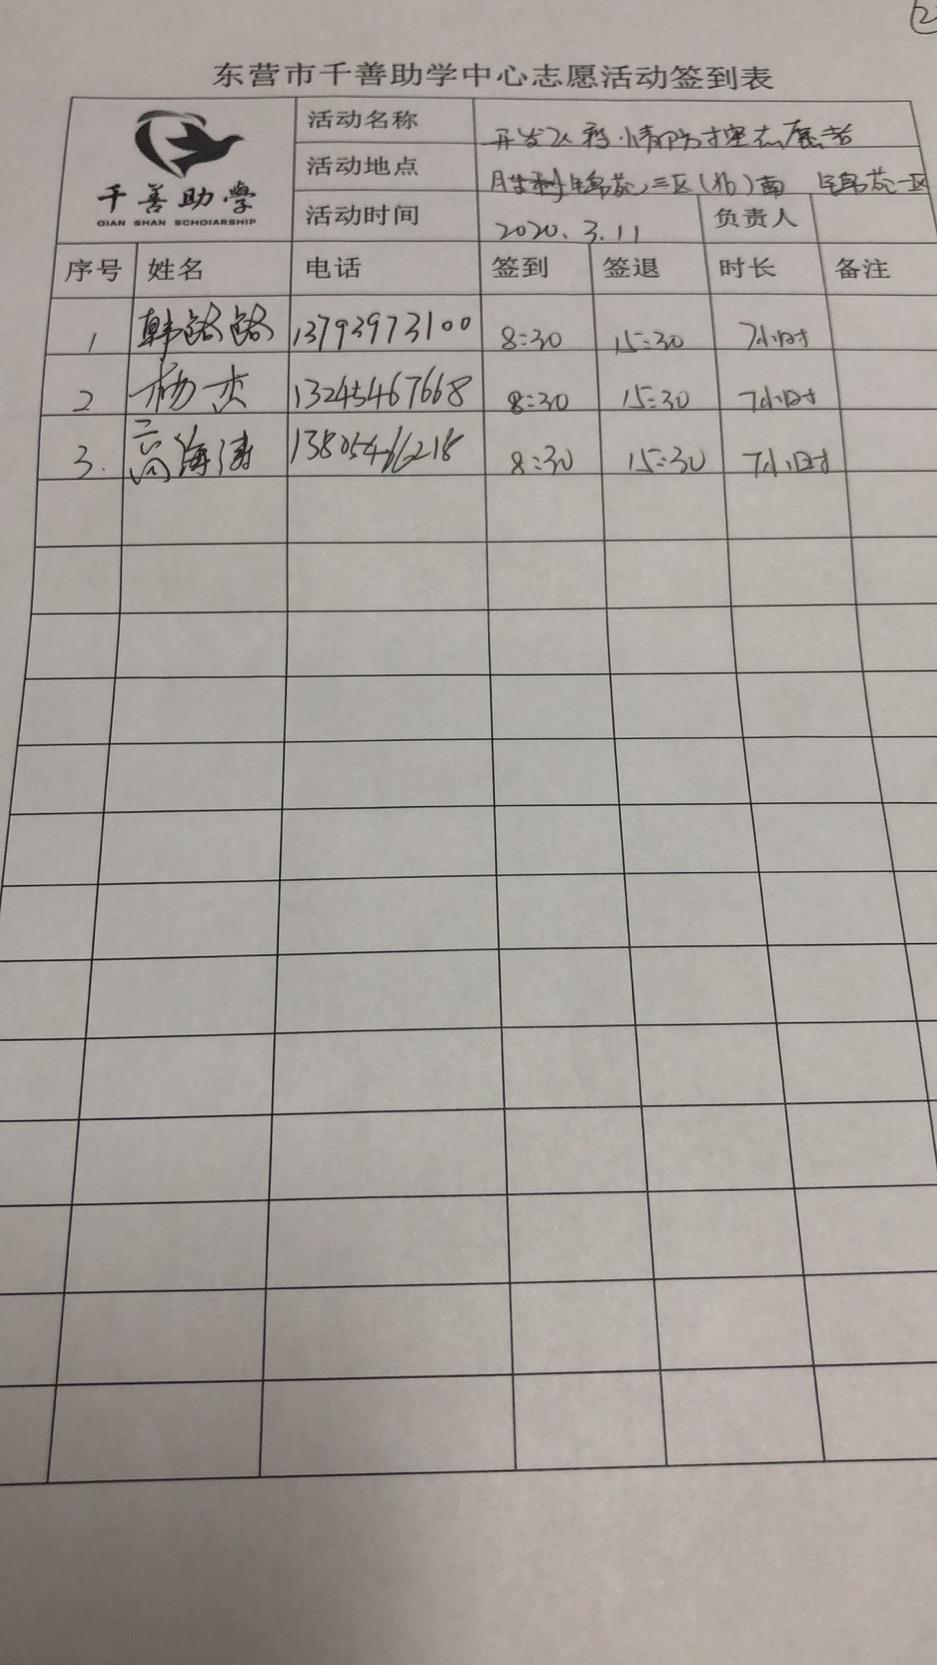 2
东营市千善助学中心志愿活动签到表
千善助学
QIAN SHAN SCHOIARSHIP
活动名称 开发区疫情防控志愿者
活动地点 胜利锦苑三区(北)南 锦苑一区
活动时间 2020.3.11 负责人
序号 姓名 电话 签到 签退 时长 备注
1 韩路路 13793973100 8:30 15:30 7小时
2 杨杰 13245467668 8:30 15:30 7小时
3. 高海涛 13805466218 8:30 15:30 7小时